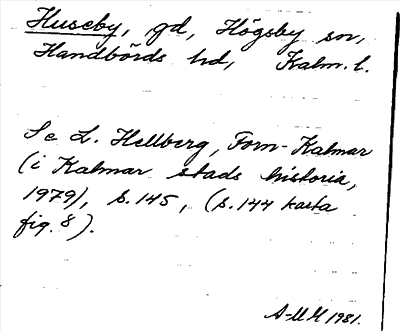 Huseby, gd, Högsby sn,
Handbörds hd, Kalm. l.
Se L. Hellberg, Forn-Kalmar
(i Kalmar stads historia,
1979), s. 145, (s. 144 karta
fig. 8).
A-MM 1981.